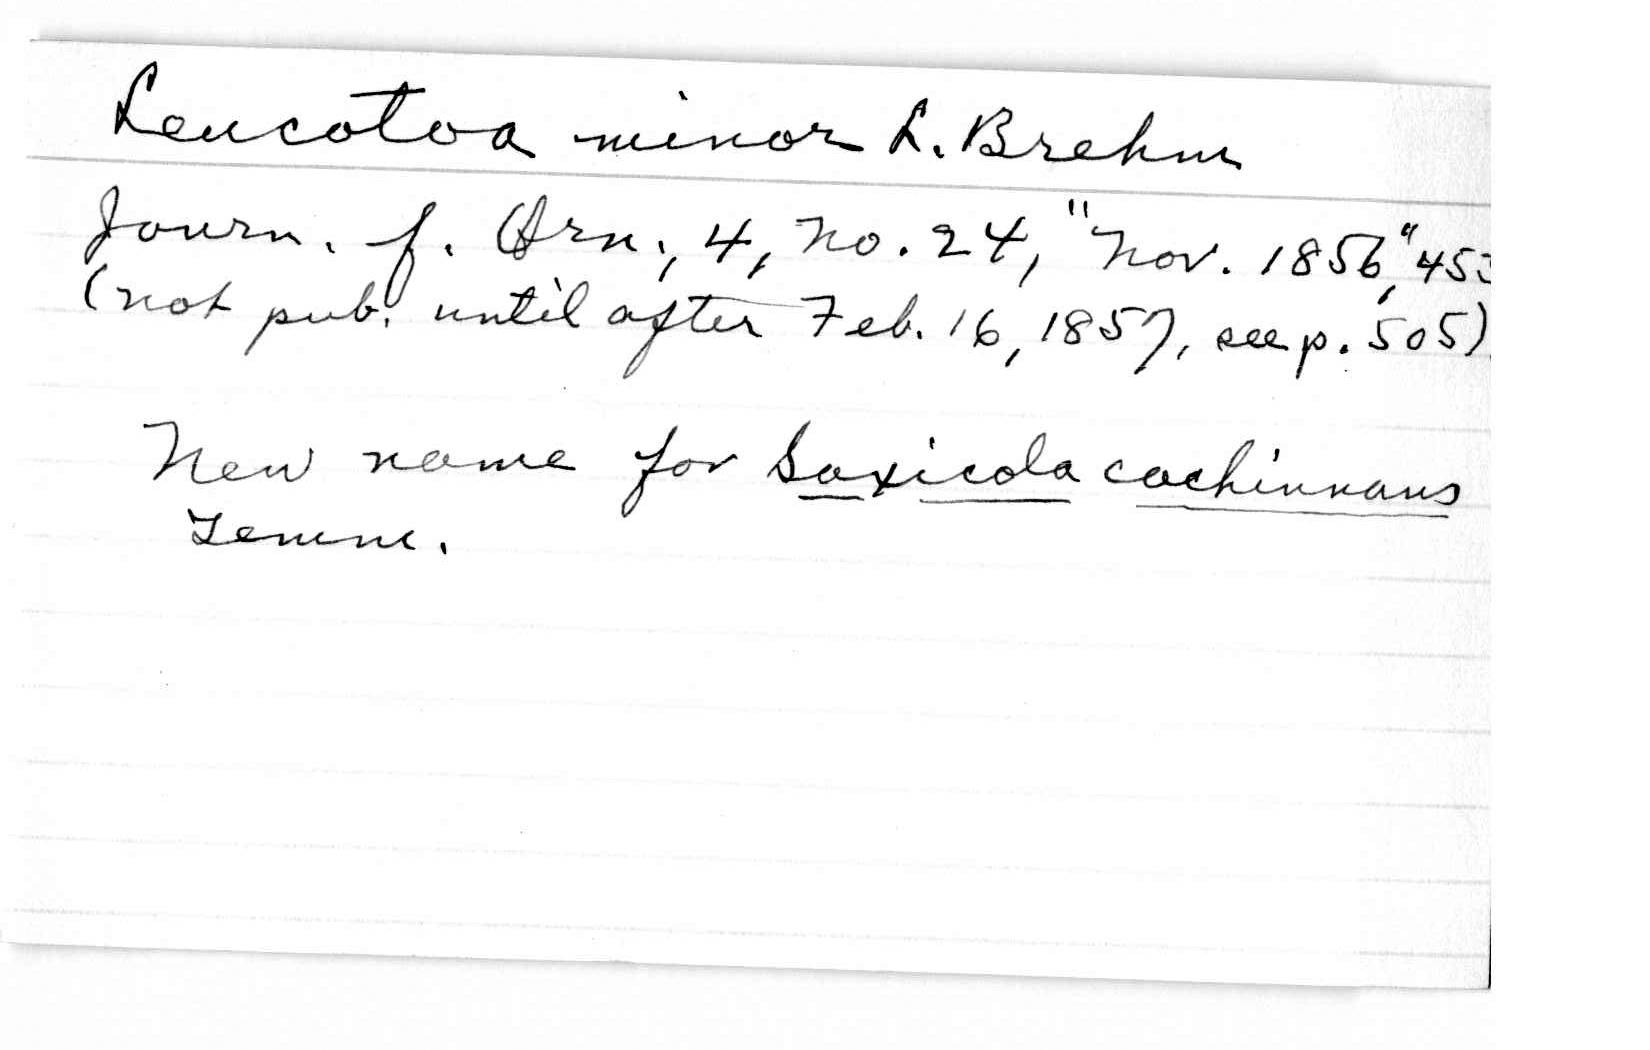 Leucotoa minor L. Brehm
Journ. f. Orn., 4, no. 24, "Nov. 1856," 45
(not pub. until after Feb. 16, 1857, see p. 505)
New name for Saxicola cachinnans
Temm.